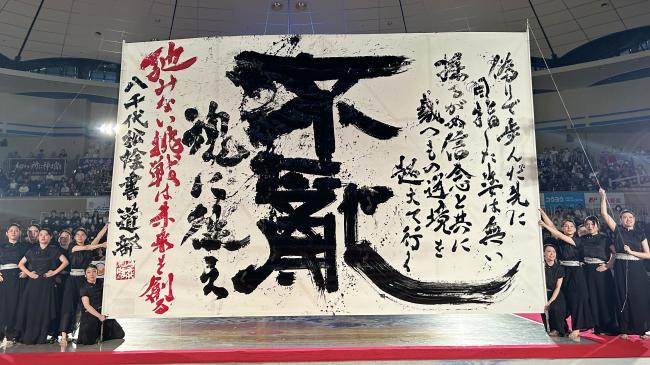 偽りで歩んだ先に
目指した姿は無い
揺るがぬ信念と共に
幾つもの逆境を
超えて行く
不亂
魂に従え
弛みない挑戦は未来を創る
八千代松陰書道部